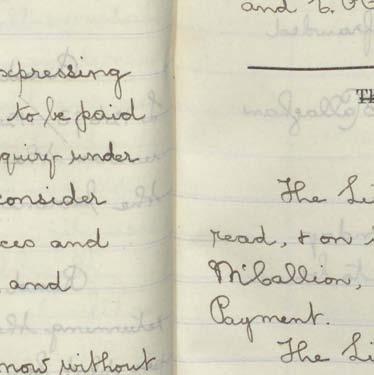 expressing
to be paid
nquiry under
consider
ces and
and
now without
and
Th
The Li
read, & on
McCallion,
Payment.
The Li